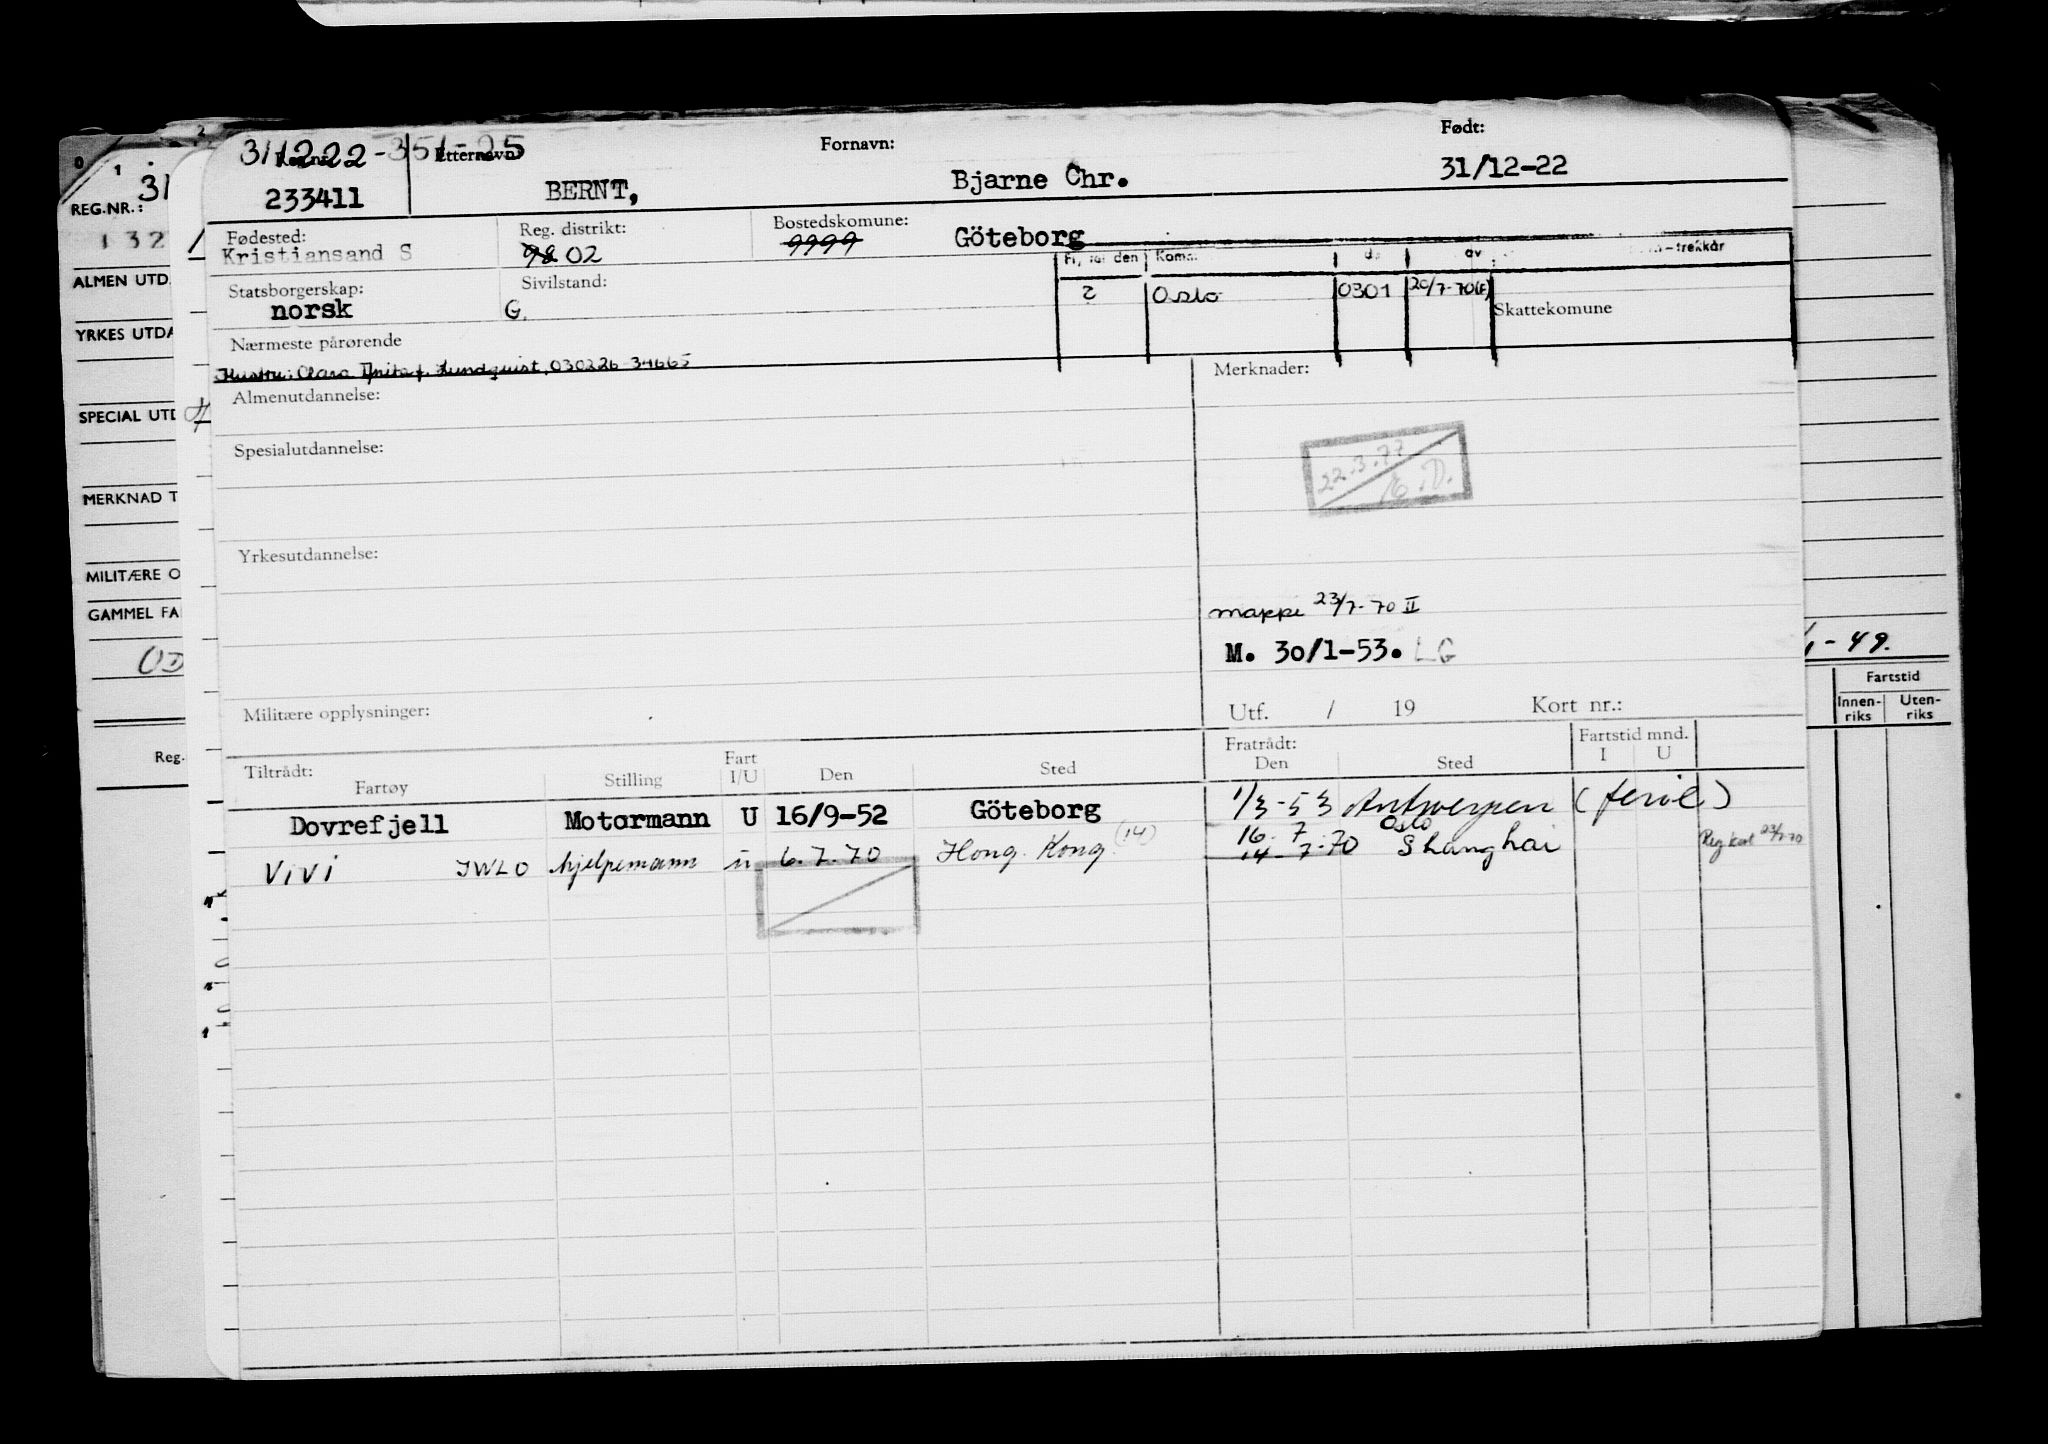 311222-351-25
Etternavn:
Fornavn:
Født:
233411
BERNT,
Bjarne Chr.
31/12-22
Fødested:
Reg. distrikt:
Bostedskomune:
Kristiansand S
98 02
9999
Göteborg
Statsborgerskap:
Sivilstand:
norsk
G.
2 Oslo 0301 20/7-70(F)
Skattekomune
Nærmeste pårørende
Hustru: Clara Anita f. Lundquist, 030226-34665
Merknader:
Almenutdannelse:
Spesialutdannelse:
22-3-77
Yrkesutdannelse:
mappe 23/7-70 II
M. 30/1-53. LG
Militære opplysninger:
Utf. / 19 Kort nr.:
Tiltrådt:
Fratrådt:
Fartstid mnd.
Fartøy Stilling Fart I/U Den Sted Den Sted I U
Dovrefjell Motormann U 16/9-52 Göteborg 1/3-53 Antwerpen (ferie)
16. 7 Oslo
ViVi JWLO hjelpemann u 6.7.70 Hong Kong (14) 14-7-70 Shanghai Reg kort 23/7-70
0
1
2
31
REG.NR.:
132
ALMEN UTD.
YRKES UTDA
SPECIAL UTD
MERKNAD T
MILITÆRE O
GAMMEL FA
Reg.
-49.
Fartstid
Innen-riks
Uten-riks